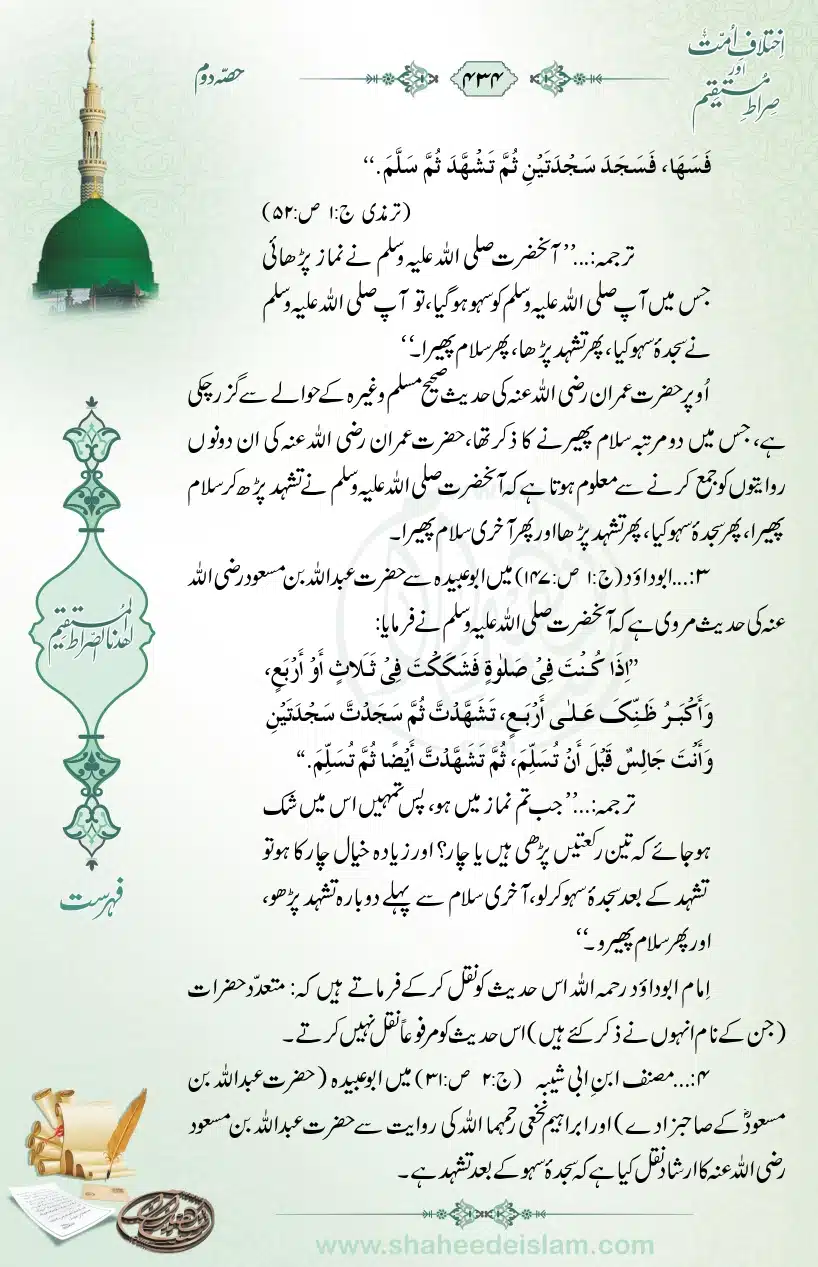 اِختلافِ اُمّت
اور
صراطِ مُستقیم
۴۳۴
حصّہ دوم
فَسَهَا، فَسَجَدَ سَجْدَتَيْنِ ثُمَّ تَشَهَّدَ ثُمَّ سَلَّمَ.‘‘
(ترمذی ج:۱ ص:۵۲)
ترجمہ:...’’آنحضرت صلی اللہ علیہ وسلم نے نماز پڑھائی
جس میں آپ صلی اللہ علیہ وسلم کو سہو ہوگیا، تو آپ صلی اللہ علیہ وسلم
نے سجدۂ سہو کیا، پھر تشہد پڑھا، پھر سلام پھیرا۔‘‘
اُوپر حضرت عمران رضی اللہ عنہ کی حدیث صحیح مسلم وغیرہ کے حوالے سے گزر چکی
ہے، جس میں دو مرتبہ سلام پھیرنے کا ذکر تھا، حضرت عمران رضی اللہ عنہ کی ان دونوں
روایتوں کو جمع کرنے سے معلوم ہوتا ہے کہ آنحضرت صلی اللہ علیہ وسلم نے تشہد پڑھ کر سلام
پھیرا، پھر سجدۂ سہو کیا، پھر تشہد پڑھا اور پھر آخری سلام پھیرا۔
۳:...ابوداؤد (ج:۱ ص:۱۴۷) میں ابوعبیدہ سے حضرت عبداللہ بن مسعود رضی اللہ
عنہ کی حدیث مروی ہے کہ آنحضرت صلی اللہ علیہ وسلم نے فرمایا:
’’اِذَا كُنْتَ فِىْ صَلٰوةٍ فَشَكَكْتَ فِىْ ثَلَاثٍ أَوْ أَرْبَعٍ،
وَأَكْبَرُ ظَنِّكَ عَلٰى أَرْبَعٍ، تَشَهَّدْتَّ ثُمَّ سَجَدْتَّ سَجْدَتَيْنِ
وَأَنْتَ جَالِسٌ قَبْلَ أَنْ تُسَلِّمَ، ثُمَّ تَشَهَّدْتَّ أَيْضًا ثُمَّ تُسَلِّمَ.‘‘
ترجمہ:...’’جب تم نماز میں ہو، پس تمہیں اس میں شک
ہوجائے کہ تین رکعتیں پڑھی ہیں یا چار؟ اور زیادہ خیال چار کا ہو تو
تشہد کے بعد سجدۂ سہو کرلو، آخری سلام سے پہلے دوبارہ تشہد پڑھو،
اور پھر سلام پھیرو۔‘‘
اِمام ابوداؤد رحمہ اللہ اس حدیث کو نقل کرکے فرماتے ہیں کہ: متعدّد حضرات
(جن کے نام انہوں نے ذکر کئے ہیں) اس حدیث کو مرفوعاً نقل نہیں کرتے۔
۴:...مصنف ابنِ ابی شیبہ (ج:۲ ص:۳۱) میں ابوعبیدہ (حضرت عبداللہ بن
مسعودؓ کے صاحبزادے) اور ابراہیم نخعی رحمہما اللہ کی روایت سے حضرت عبداللہ بن مسعود
رضی اللہ عنہ کا ارشاد نقل کیا ہے کہ سجدۂ سہو کے بعد تشہد ہے۔
اهدنا الصراط المستقیم
فہرست
www.shaheedeislam.com